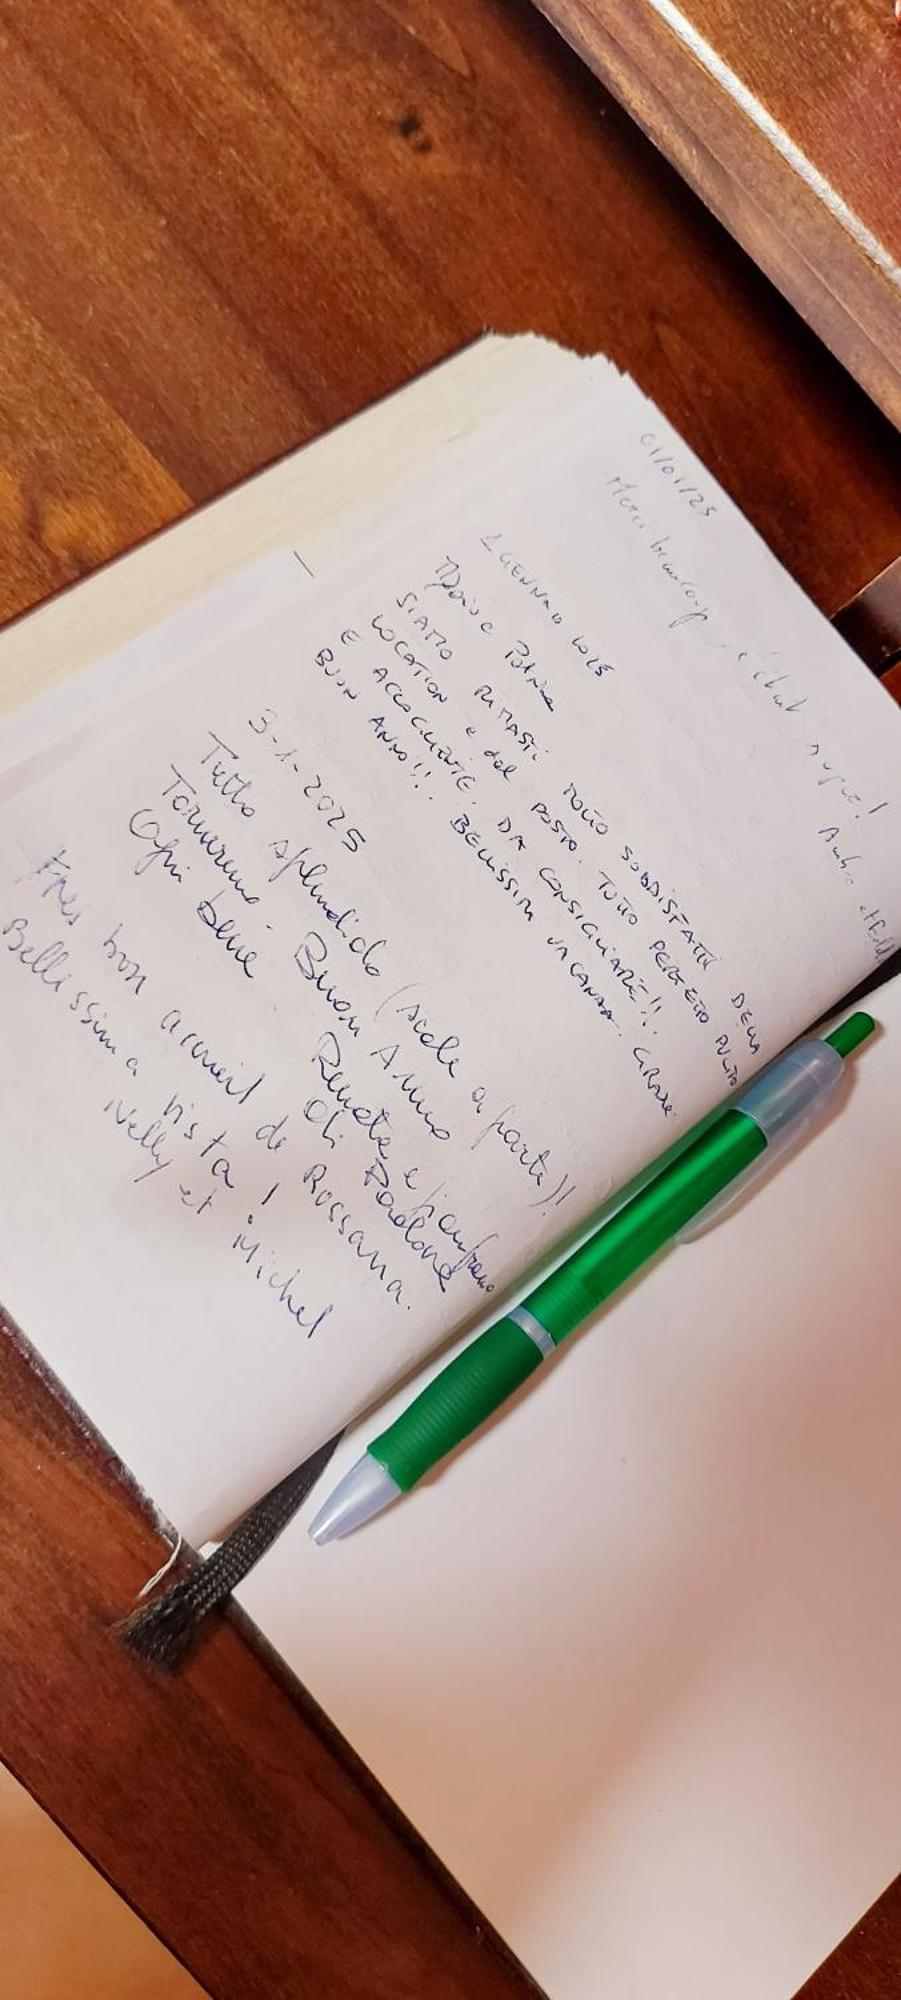 01/01/25
Merci beaucoup, c'était super!
1 GENNAIO 2025
SIAMO RIMASTI MOLTO SODDISFATTI DELLA
LOCATION e del POSTO. TUTTO PERFETTO PULITO
E ACCOGLIENTE. DA CONSIGLIARE!!.
BUON ANNO!!. BELLISSIMA VACANZA. GRAZIE
3-1-2025
Tutto splendido (scale a parte)!
Torneremo. Buon Anno
Ogni bene Renata e
di Padova
Très bon acceuil de Rossana.
Bellissima vista!
Nelly et Michel